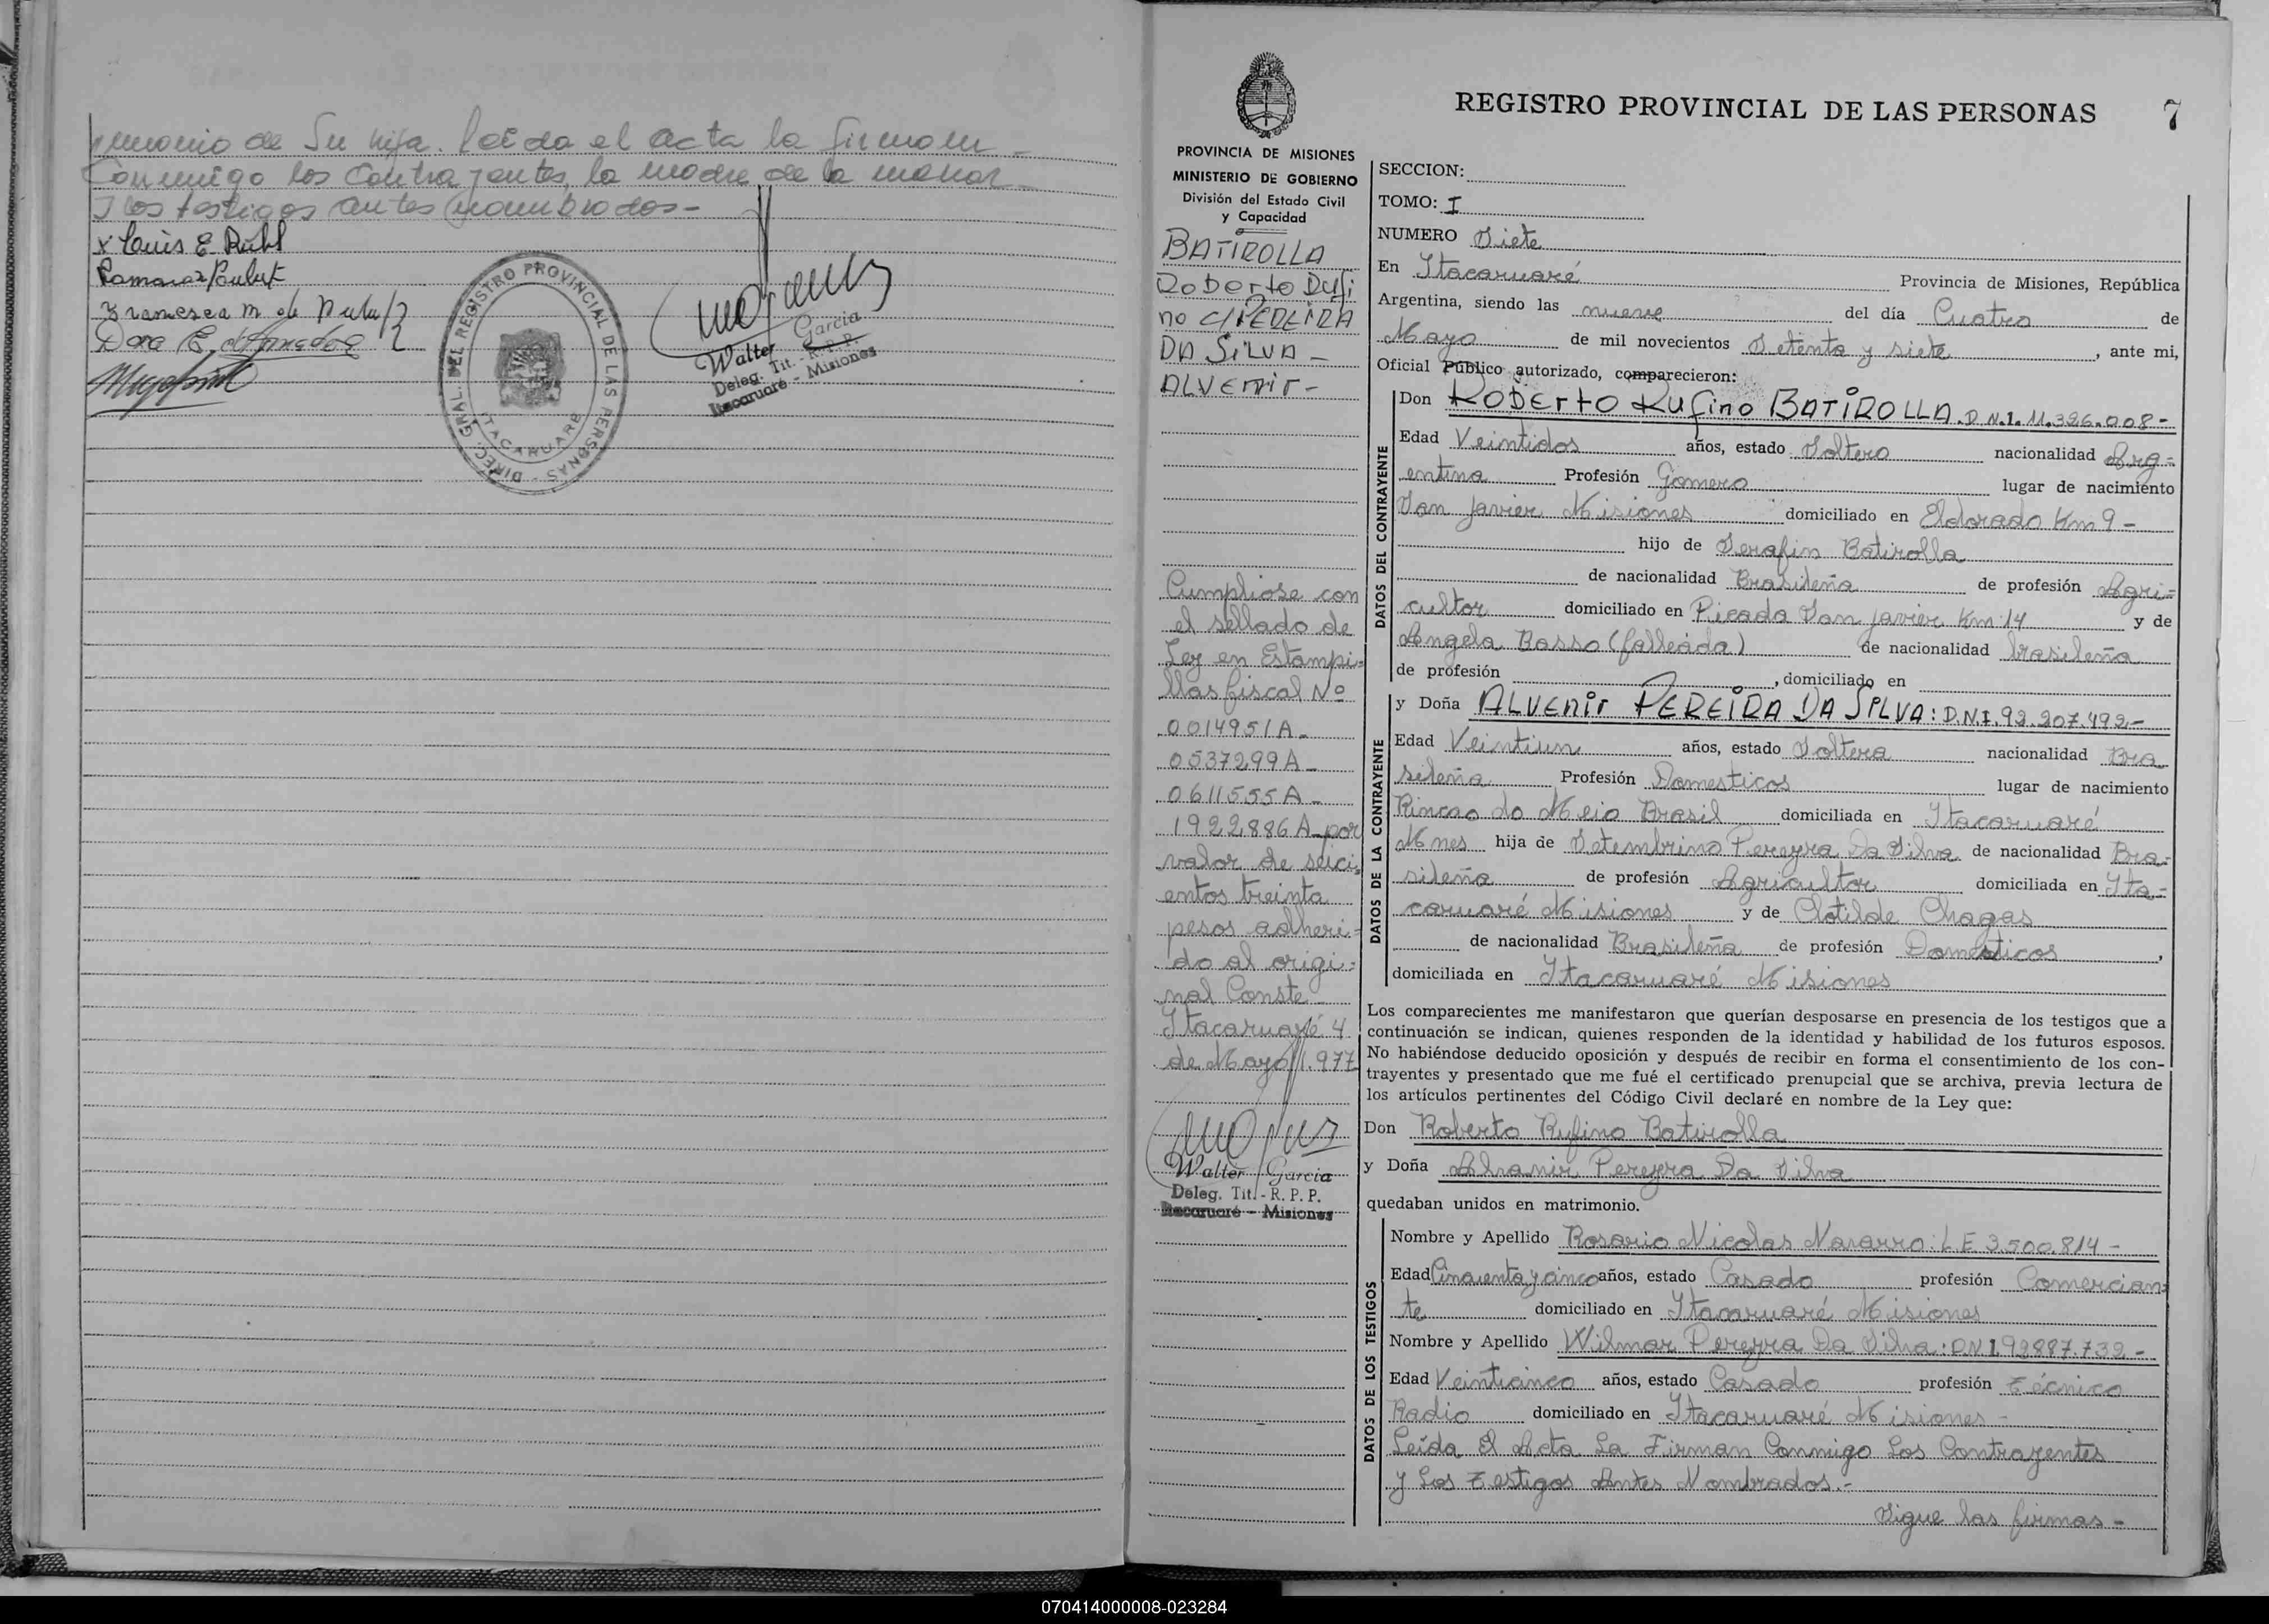 de Su hija. Leída el acta la firman
Conmigo los Contrayentes, la madre de la menor
y los testigos antes nombrados-
x Luis E. Rühl
Francisca M. de
Walter Garcia
Deleg. Tit. - R. P. P.
Itacaruaré - Misiones
DIREC. GRAL. DEL REGISTRO PROVINCIAL DE LAS PERSONAS - ITACARUARE
REGISTRO PROVINCIAL DE LAS PERSONAS 7
PROVINCIA DE MISIONES
MINISTERIO DE GOBIERNO
División del Estado Civil
y Capacidad
BATIROLLA
Roberto Rufi
no c/PEREIRA
DA SILVA -
ALVENIR -
Cumpliose con
el sellado de
Ley en Estampi=
llas fiscal Nº
0014951A-
0537299A-
0611555A-
1922886A-por
valor de seici
entos treinta
pesos adheri=
do al origi=
nal Conste
Itacaruaré 4
de Mayo 1.977
Walter Garcia
Deleg. Tit. - R. P. P.
Itacaruaré - Misiones
SECCION:
TOMO: I
NUMERO Siete
En Itacaruaré Provincia de Misiones, República
Argentina, siendo las nueve del día Cuatro de
Mayo de mil novecientos Setenta y siete, ante mi,
Oficial Público autorizado, comparecieron:
DATOS DEL CONTRAYENTE
Don ROBErto Rufino BATIROLLA. D.N.I. 11.326.008-
Edad Veintidos años, estado Soltero nacionalidad Arg=
entina Profesión Gomero lugar de nacimiento
San Javier Misiones domiciliado en Eldorado Km 9-
hijo de Serafin Batirolla
de nacionalidad Brasileña de profesión Agri=
cultor domiciliado en Picada San Javier Km 14 y de
Angela Basso (falleida) de nacionalidad brasileña
de profesión , domiciliado en
DATOS DE LA CONTRAYENTE
y Doña ALVEnir PEREIRA DA SILVA: D.N.I. 92.207.492-
Edad Veintiun años, estado Soltera nacionalidad Bra
sileña Profesión Domesticos lugar de nacimiento
Rincao do Meio Brasil domiciliada en Itacaruaré
Mnes hija de Setembrino Pereyra Da Silva de nacionalidad Bra=
sileña de profesión Agricultor domiciliada en Ita=
caruaré Misiones y de Clotilde Chagas
de nacionalidad Brasileña de profesión Domesticos,
domiciliada en Itacaruaré Misiones
Los comparecientes me manifestaron que querían desposarse en presencia de los testigos que a
continuación se indican, quienes responden de la identidad y habilidad de los futuros esposos.
No habiéndose deducido oposición y después de recibir en forma el consentimiento de los con-
trayentes y presentado que me fué el certificado prenupcial que se archiva, previa lectura de
los artículos pertinentes del Código Civil declaré en nombre de la Ley que:
Don Roberto Rufino Batirolla
y Doña Alvanir Pereyra Da Silva
quedaban unidos en matrimonio.
DATOS DE LOS TESTIGOS
Nombre y Apellido Rosario Nicolas Navarro: L E 3.500.814-
Edad Cincuenta y cinco años, estado Casado profesión Comercian=
te domiciliado en Itacaruaré Misiones
Nombre y Apellido Wilmar Pereyra Da Silva: DNI 92887.732-
Edad Veinticinco años, estado Casado profesión Técnico
Radio domiciliado en Itacaruaré Misiones-
Leída El Acta La Firman Conmigo Los Contrayentes
y Los Testigos Antes Nombrados.-
Sigue las firmas-
070414000008-023284